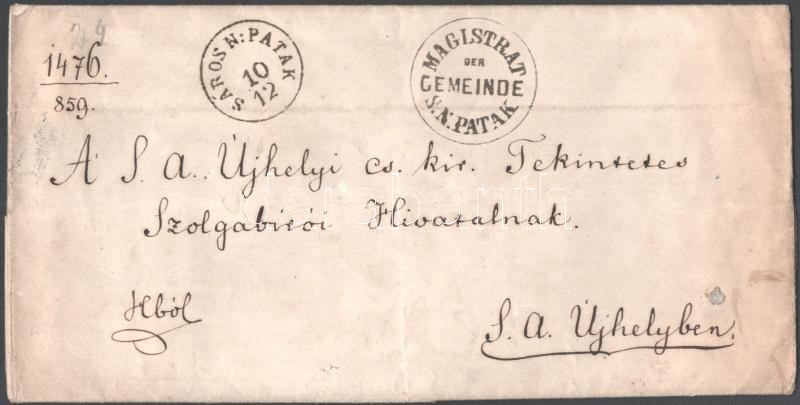 24
1476.
859.
SAROS N: PATAK
10
12
MAGISTRAT
DER
GEMEINDE
S.N.PATAK
A S. A. Újhelyi cs. kir. Tekintetes
Szolgabirói Hivatalnak.
darabanth
Hból
S. A. Újhelyben.